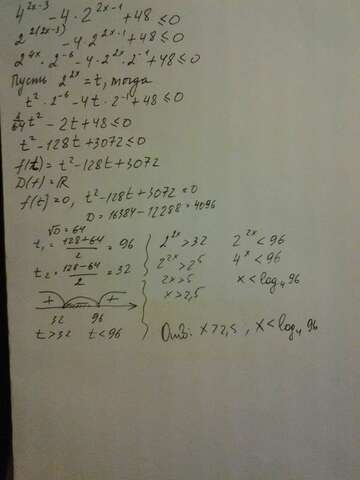 4^{2x-3} - 4 · 2^{2x-1} + 48 ≤ 0
2^{2(2x-3)} - 4 · 2^{2x-1} + 48 ≤ 0
2^{4x} · 2^{-6} - 4 · 2^{2x} · 2^{-1} + 48 ≤ 0
Пусть 2^{2x} = t, тогда
t² · 2^{-6} - 4t · 2^{-1} + 48 ≤ 0
1/64 t² - 2t + 48 ≤ 0
t² - 128t + 3072 ≤ 0
f(t) = t² - 128t + 3072
D(t) = R
f(t) = 0, t² - 128t + 3072 = 0
D = 16384 - 12288 = 4096
√D = 64
t₁ = (128+64)/2 = 96
t₂ = (128-64)/2 = 32
+ - +
32 96
t > 32 t < 96
2^{2x} > 32
2^{2x} > 2^5
2x > 5
x > 2,5
2^{2x} < 96
4^x < 96
x < log₄ 96
Отв: x > 2,5, x < log₄ 96